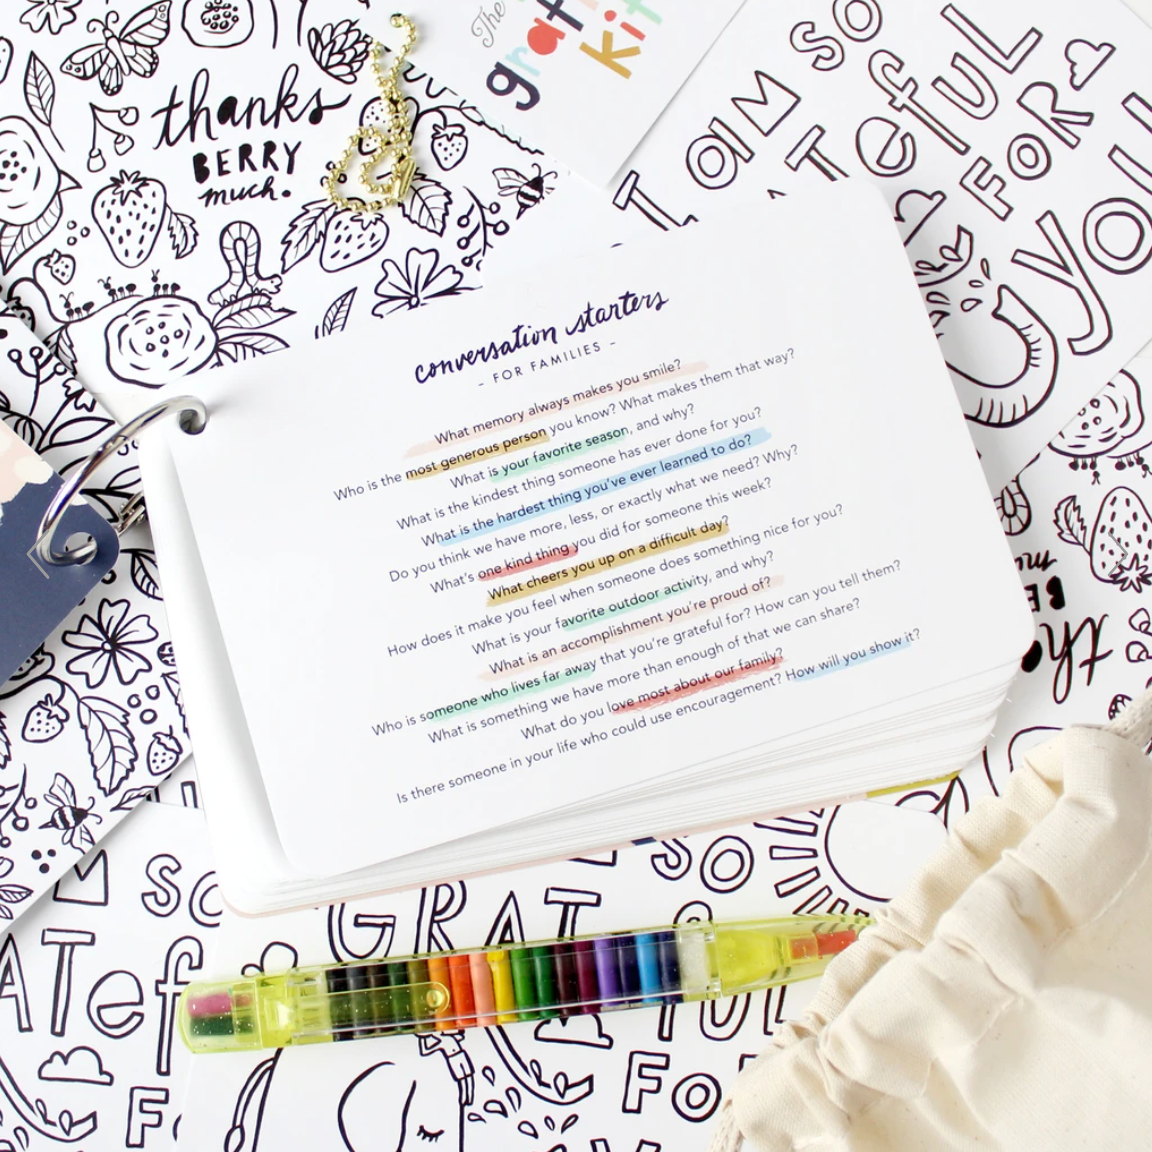 thanks
BERRY
much.
The
grat
kit
I am so
ateful
FOR
you
conversation starters
- FOR FAMILIES -
What memory always makes you smile?
Who is the most generous person you know? What makes them that way?
What is your favorite season, and why?
What is the kindest thing someone has ever done for you?
What is the hardest thing you've ever learned to do?
Do you think we have more, less, or exactly what we need? Why?
What's one kind thing you did for someone this week?
What cheers you up on a difficult day?
How does it make you feel when someone does something nice for you?
What is your favorite outdoor activity, and why?
What is an accomplishment you're proud of?
Who is someone who lives far away that you're grateful for? How can you tell them?
What is something we have more than enough of that we can share?
What do you love most about our family?
Is there someone in your life who could use encouragement? How will you show it?
th
BE
mu
SO
ATef
FO
SO
GRAT
FUL
FO